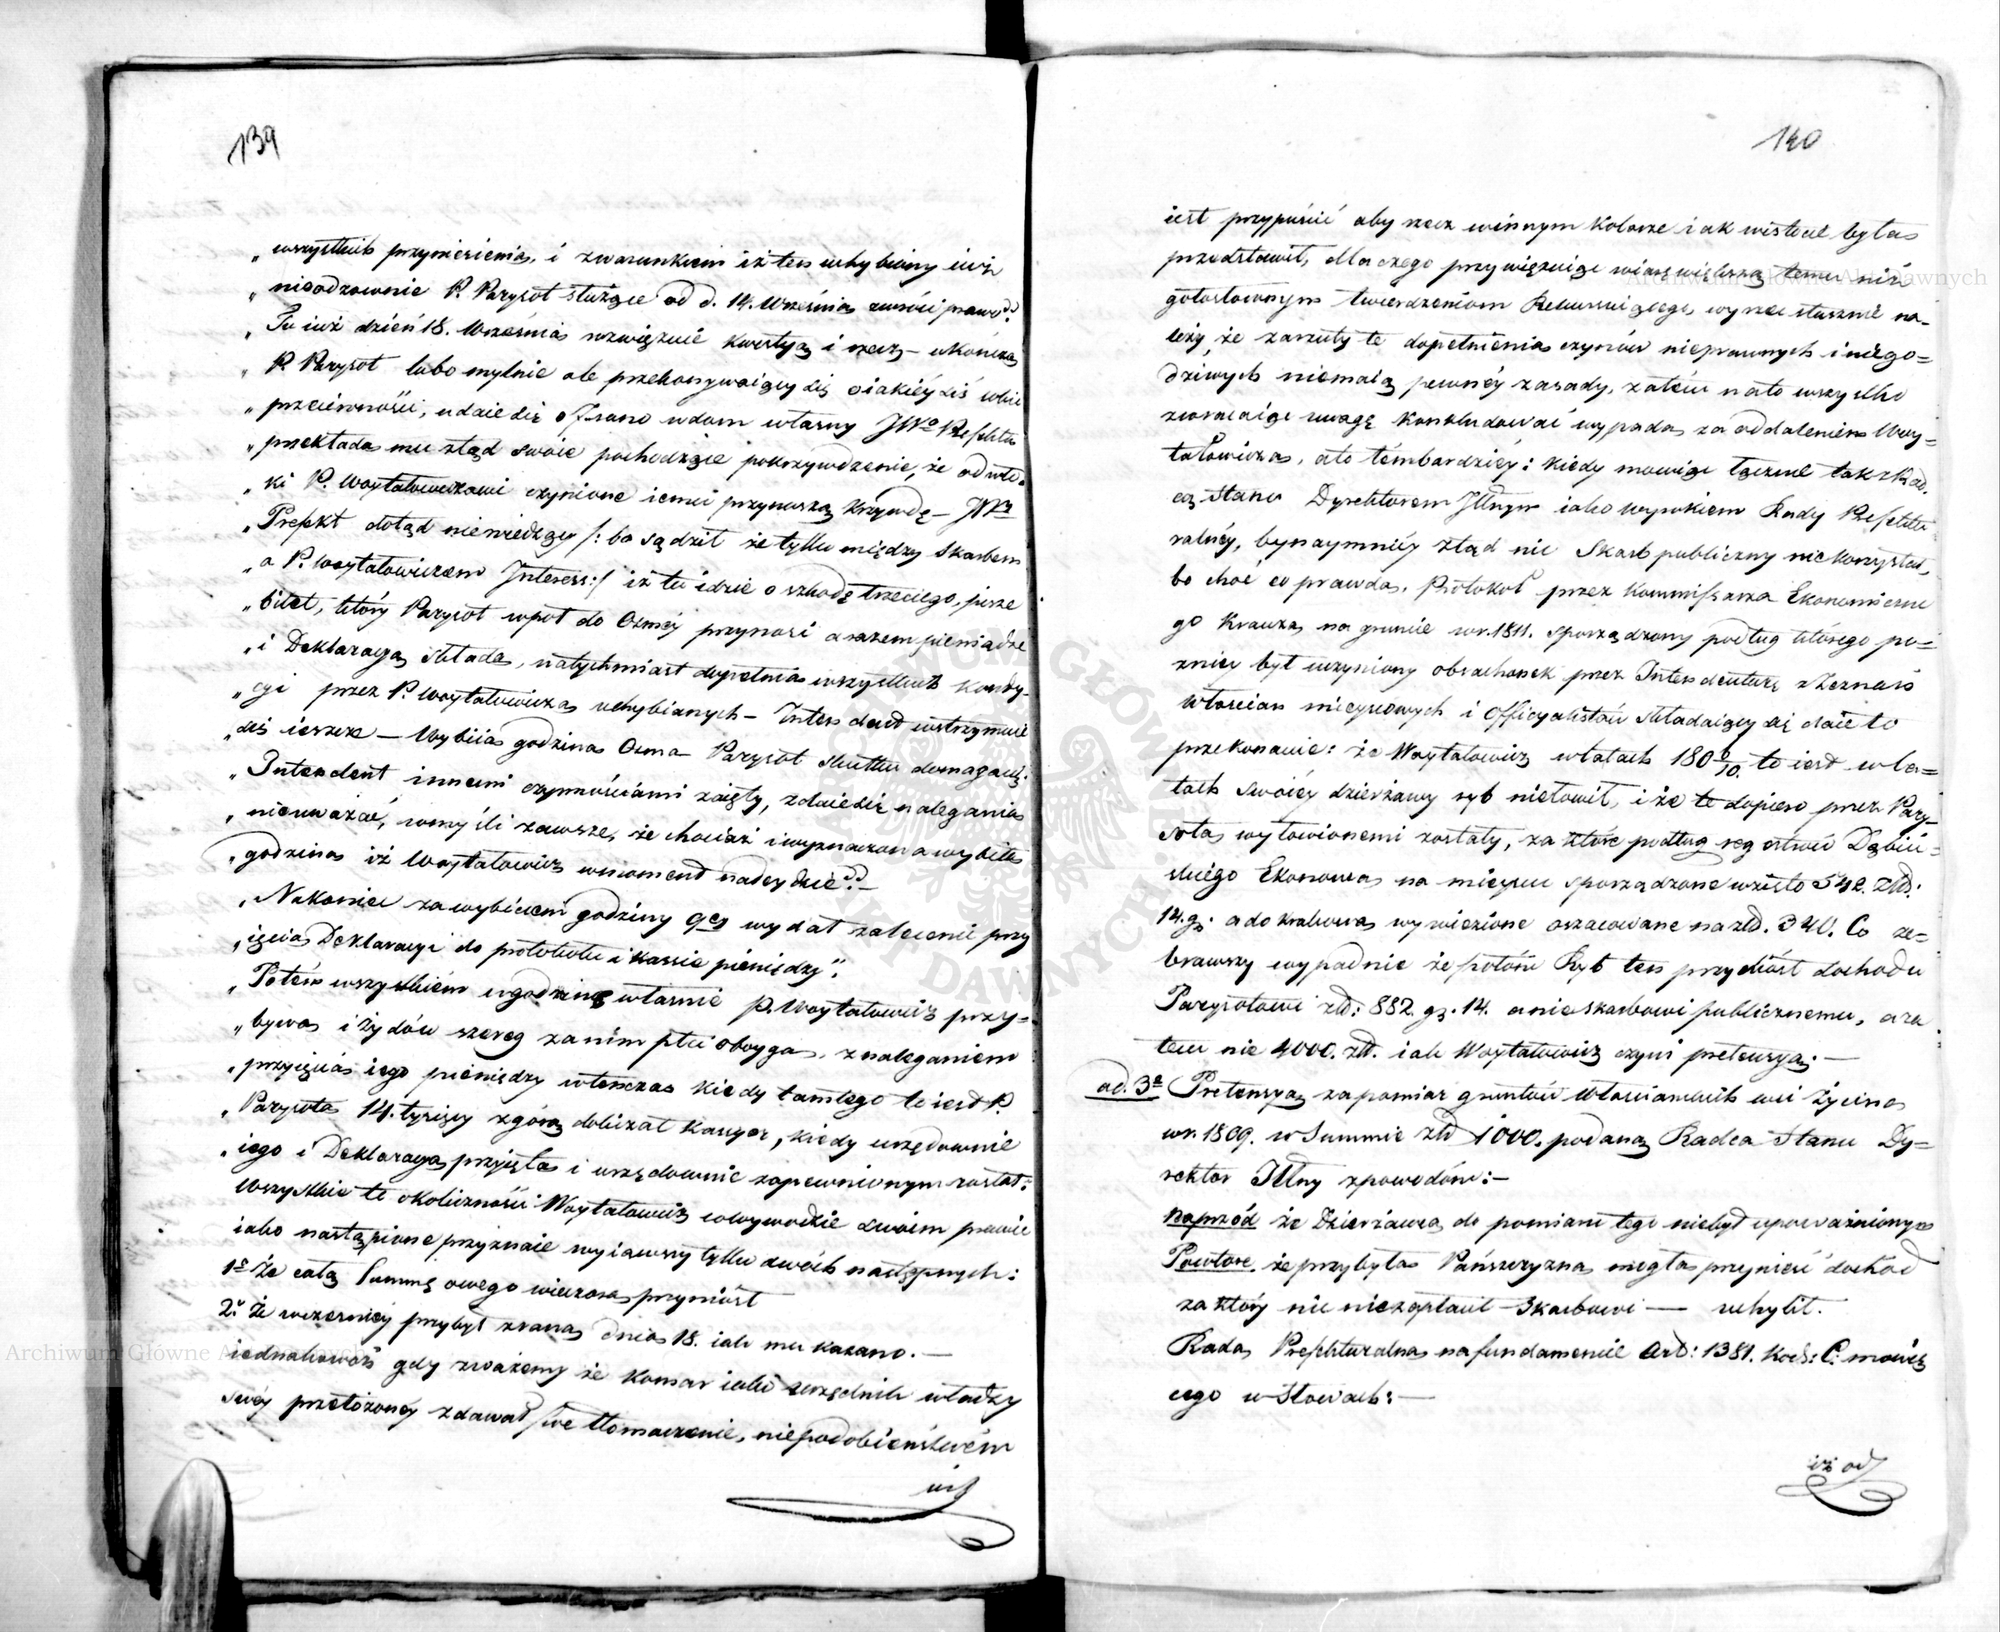 139
„wszystkich przyniesienia, i zwarunkiem iż ten uchybiony iuż
„nieodzownie P. Parysot służące od d. 14. Września zwróci prawo".
„Tu iuż dzień 18. Września rozwiązuie kwestyą i rzecz – ukończa
„P. Parysot lubo mylnie ale przekonywaiący się oiakieyśiś sobie
„przeciwności, udaie się o 7. rano w dom własny JWo Prefekta
„przekłada mu ztąd swóie pochodzące pokrzywdzenie, że odwło-
„ki P. Woytałowiczowi czynione iemu przynoszą krzywdę – JW
„Prefekt dotąd niewiedzący /: bo sądził że tylko między Skarbem
„a P. Woytałowiczem Interess :/ iż tu idzie o szkodę trzeciego, pisze
„bilet, który Parysot wpół do Osméy przynosi a razem pieniądze
„i Deklaracyą składa, natychmiast dopełnia wszystkich kondy-
„cyi przez P. Woytałowicza uchybianych – Intendent wstrzymuie
„się ieszcze – Wybiia godzina Osma – Parysot skutku domaga się:
„Intendent innemi czynnościami zaięty, zdaie się nalegania
„nieuważać, w myśli zawsze, że chociaż i wyznaczona wybiła
„godzina iż Woytałowicz w moment nadeydzie". –
„Nakoniec za wybiciem godziny 9tey wydał zalecenie przy
„ięcia Deklaracyi do protokołu i kassie pieniędzy".
„Potém wszystkiém w godzinę właśnie P. Woytałowicz przy-
„bywa i Żydów szereg za nim płci oboyga, z naleganiem
„przyięcia iego pieniędzy wtenczas kiedy tamtego to iest P.
„Parysota 14. tysięcy z górą doliczał Kassyer, kiedy urzędownie
„iego i Deklaracya przyięta i urzędownie zapewnionym został".
Wszystkie te okoliczności Woytałowicz w wywodzie swoim prawie
iako nastąpione przyznaie wyiąwszy tylko dwóch następnych:
1o Że całą Summę owego wieczora przyniósł
2o Że wcześniéy przybył z rana dnia 18. iak mu kazano. –
iednakowoż gdy zważemy że Komar iako Urzędnik władzy
swéy przełożonéy zdawał swe tłomaczenie, niepodobieństwém
iest
140
iest przypuścić aby rzecz winnym kolorze iak wistocie była
przedstawił, dla czego przywięzuiąc wiarę większą temu niż
gołosłownym twierdzeniom Rekurruiącego, wyrzec słusznie na-
leży, że zarzuty te dopełnienia czynów nieprawnych i niego-
dziwych niemaią pewnéy zasady, zatém na to wszystko
zwracaiąc uwagę konkludować wypada za oddaleniem Woy-
tałowicza, a to tém bardziéy: kiedy mowiąc łącznie tak z Rad-
cą Stanu Dyrektorem Jllnym iako wyrokiem Rady Prefektu
ralnéy, bynaymniéy ztąd nic Skarb publiczny nie korzystał,
bo choć co prawda, Protokoł przez Kommissarza Ekonomiczne
go Krauza na gruncie w r. 1811. sporządzony podług którego po-
zniey był uczyniony obrachonek przez Intendenturę z Zeznań
włościan mieyscowych i Officyalistów składaiący się daie to
przekonanie: że Woytałowicz w latach 1809/10. to iest w la-
tach swoiéy dzierżawy ryb niełowił, i że te dopiero przez Pary-
sota wyłowionemi zostały, za które podług regestrów Dębiń-
skiego Ekonoma na mieyscu sporządzone wzięto 542. Złt:
14. g. a do Krakowa wywiezione oszacowane na złt. 340. Co ze-
brawszy wypadnie że połów Ryb ten przyniósł dochodu
Parysotowi złt: 882. gr. 14. a nie skarbowi publicznemu, a za
tém nie 4000. złt. iak Woytałowicz czyni pretensyą: –
ad. 3o Pretensya za pomiar gruntów Włosciańskich wsi Życina
w r. 1809. w Summie złt 1000. podaną Radca Stanu Dy-
rektor Jllny z powodów: –
Naprzód że Dzierżawca do pomiaru tego niebył upoważnionym
Powtóre że przybyła Pańszczyzna mogła przynieść dochód
za który nic niezapłacił Skarbowi — uchylił.
Rada Prefekturalna na fundamencie Art: 1381. Kod: C. mowią
cego w Słowach: –
iż od
Archiwum Główne Akt Dawnych